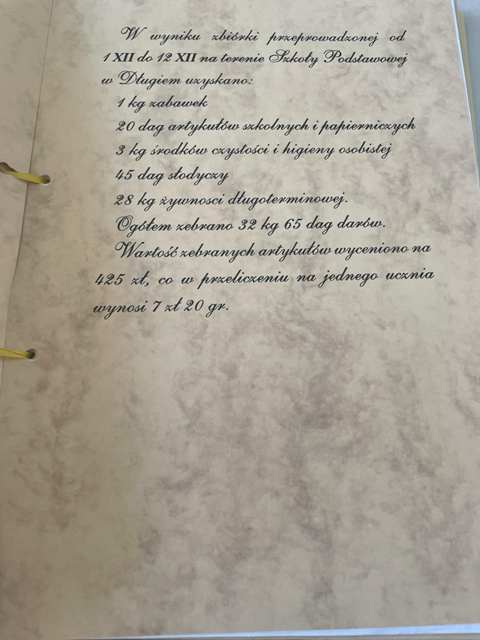 W wyniku zbiórki przeprowadzonej od
1 XII do 12 XII na terenie Szkoły Podstawowej
w Długiem uzyskano:
1 kg zabawek
20 dag artykułów szkolnych i papierniczych
3 kg środków czystości i higieny osobistej
45 dag słodyczy
28 kg żywnosci długoterminowej.
Ogółem zebrano 32 kg 65 dag darów.
Wartość zebranych artykułów wyceniono na
425 zł, co w przeliczeniu na jednego ucznia
wynosi 7 zł 20 gr.